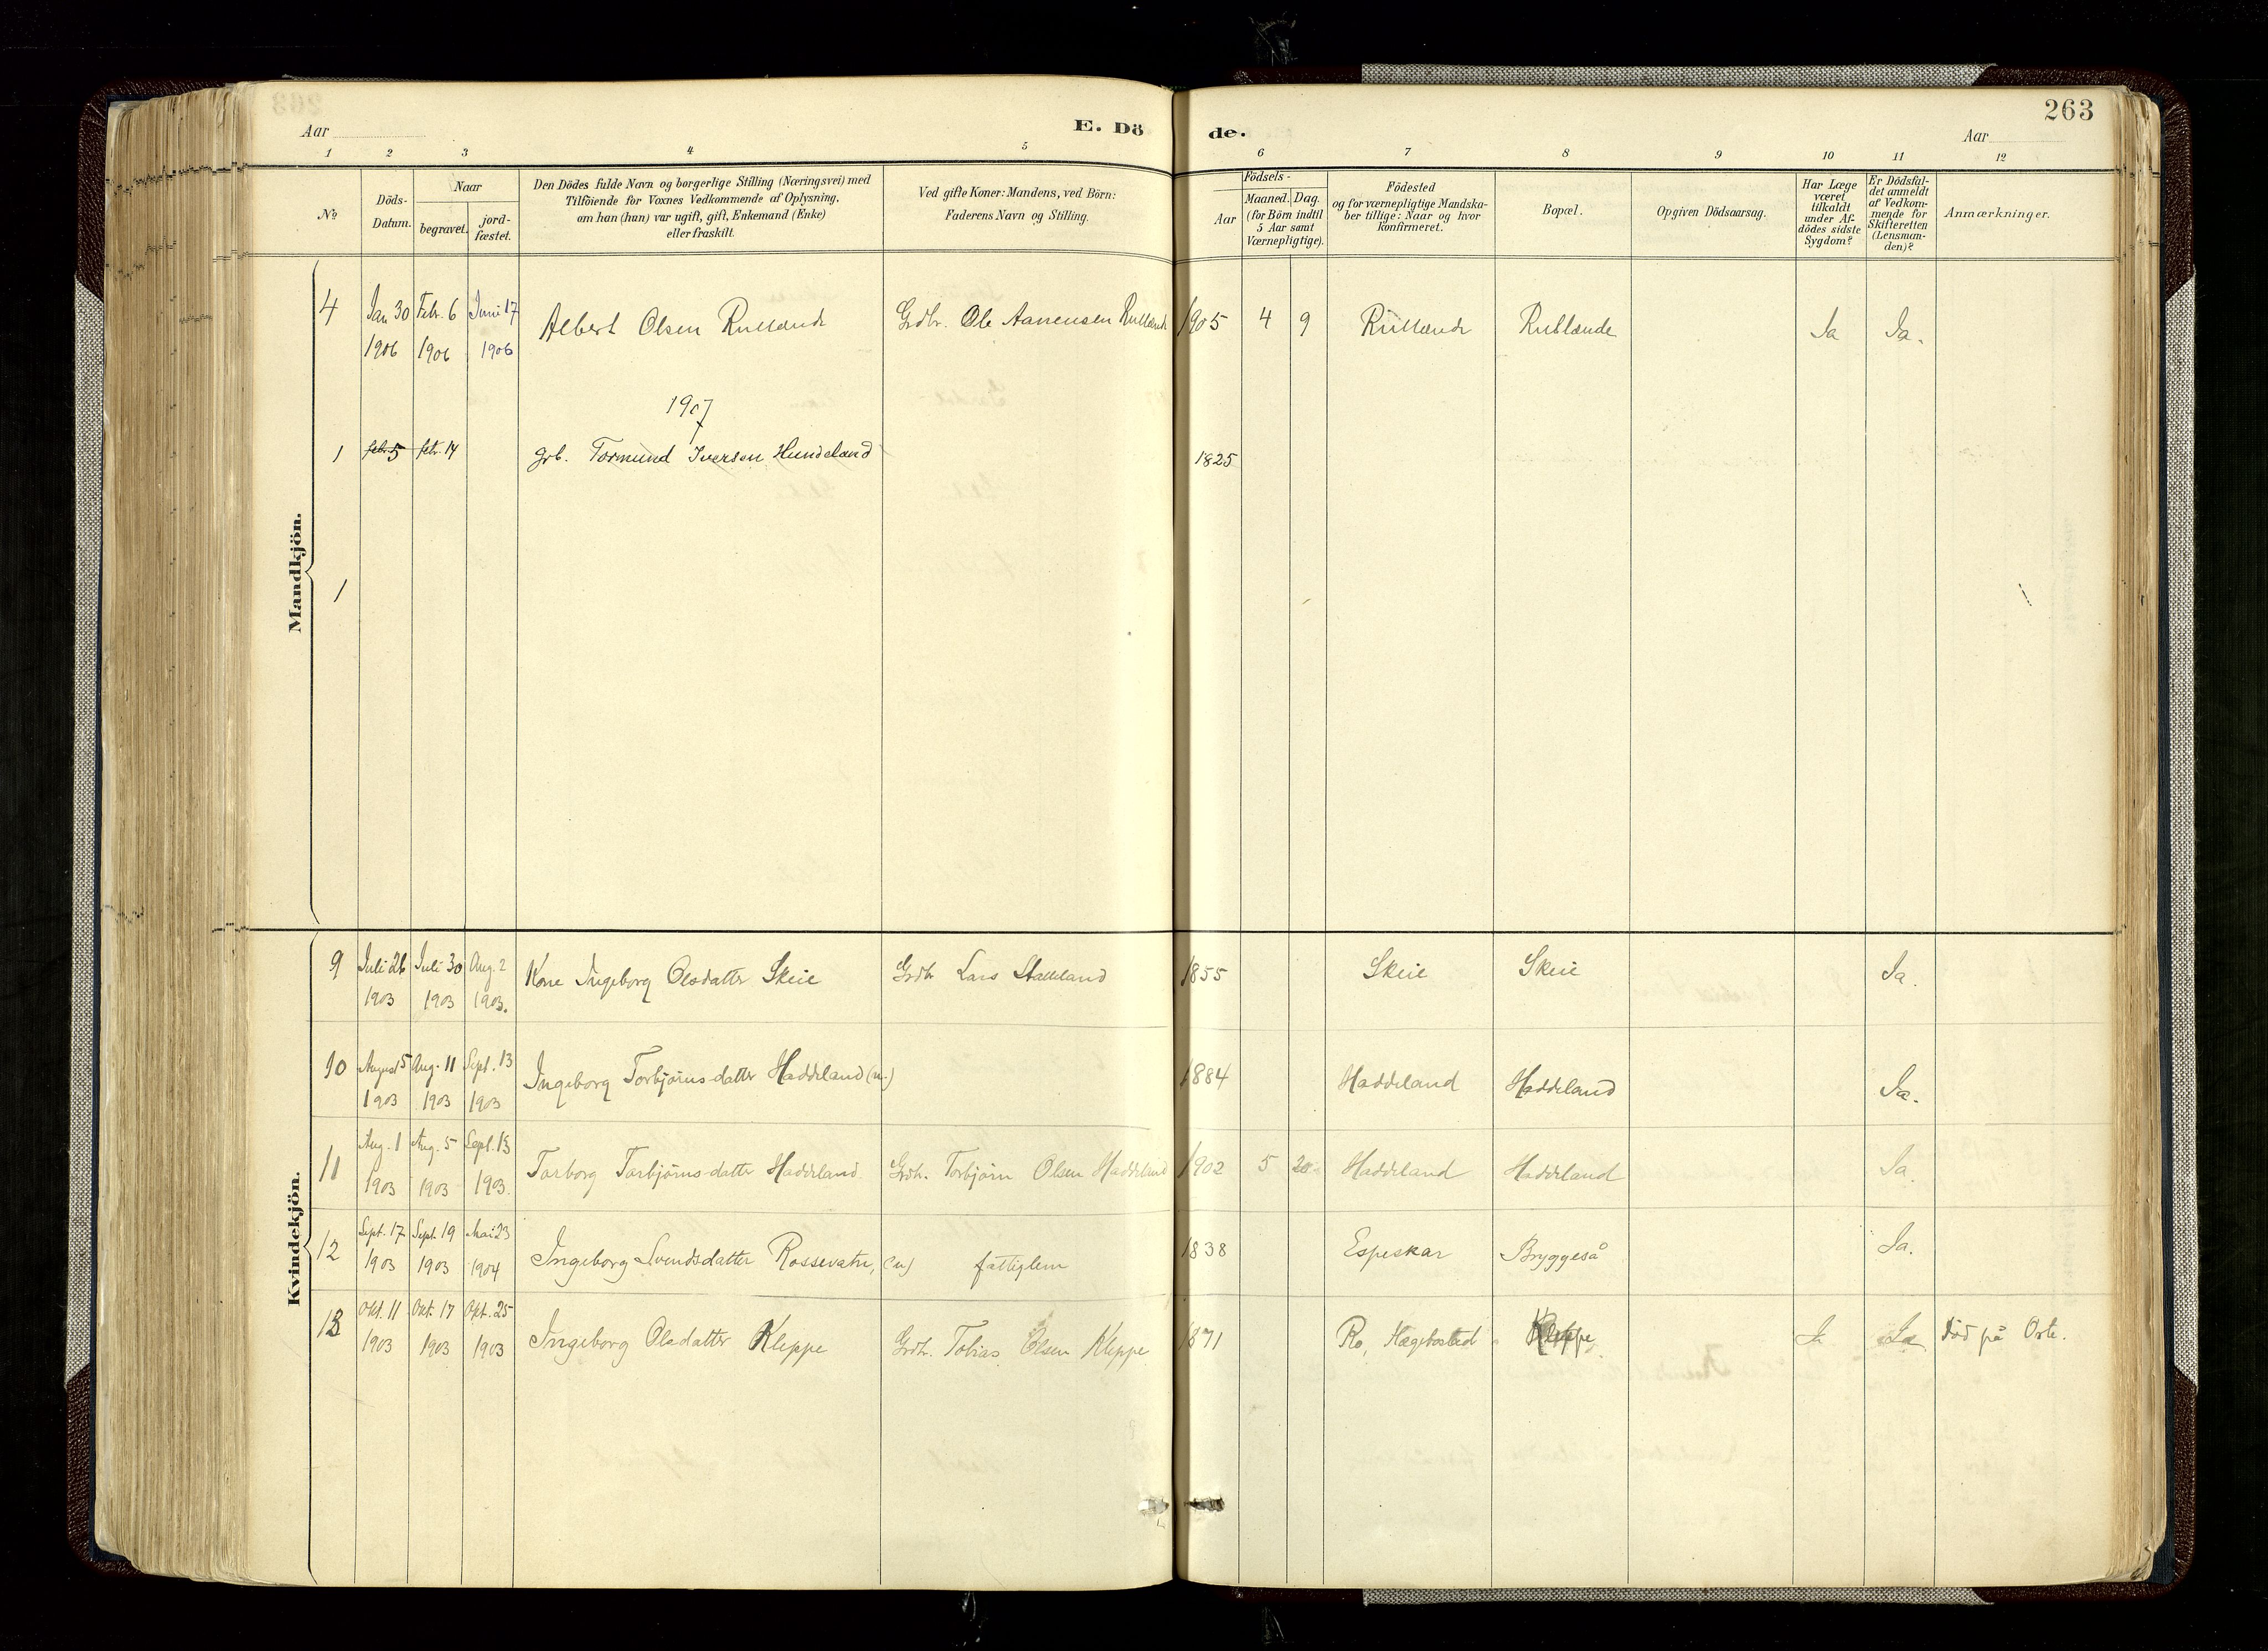 263
Aar
E. Dö de.
Aar
1 2 3 4 5 6 7 8 9 10 11 12
№
Döds-
Datum.
Naar
begravet.
jord-
fæstet.
Den Dödes fulde Navn og borgerlige Stilling (Næringsvei) med
Tilföiende for Voxnes Vedkommende af Oplysning,
om han (hun) var ugift, gift, Enkemand (Enke)
eller fraskilt.
Ved gifte Koner: Mandens, ved Börn:
Faderens Navn og Stilling.
Födsels-
Aar
Maaned. Dag.
(for Börn indtil
5 Aar samt
Værnepligtige).
Födested
og for værnepligtige Mandska-
ber tillige: Naar og hvor
konfirmeret.
Bopæl.
Opgiven Dödsaarsag.
Har Læge
været
tilkaldt
under Af-
dödes sidste
Sygdom?
Er Dödsfal-
det anmeldt
af Vedkom-
mende for
Skifteretten
(Lensman-
den)?
Anmærkninger.
Mandkjön.
4 Jan 30 Febr. 6 Juni 17 Albert Olsen Rulland Grdbr. Ole Aanensen Rulland 1905 4 9 Rulland Ja Ja.
1906 1906 1906
1907
1 febr 5 febr. 14 grb. Tormund Iversen Hundeland 1825
1
Kvindekjön.
9 Juli 26 Juli 30 Aug. 2 Kone Ingeborg Olsdatter Skeie Grdb Lars 1855 Skeie Skeie Ja.
1903 1903 1903.
10 August 5 Aug. 11 Sept. 13 Ingeborg Torbjørns-datter Haddeland (u.) 1884 Haddeland Haddeland Ja.
1903 1903 1903
11 Aug. 1 Aug. 5 Sept. 13 Torborg Torbjørns-datter Haddeland Grdb. Torbjørn Olsen Haddeland 1902 5 Haddeland Haddeland Ja.
1903 1903 1903.
12 Sept. 17 Sept. 19 Mai 23 Ingeborg Svendsdatter Rossevatn, (u) fattiglem 1838 Espeskar Bryggeså Ja.
1903 1903 1904
13 Okt. 11 Okt. 17 Okt. 25 Ingeborg Olsdatter Kleppe Grdb. Tobias Olsen Kleppe 1871 Ro, Hægebostad Kleppe Ja Ja død på Oste.
1903 1903 1903